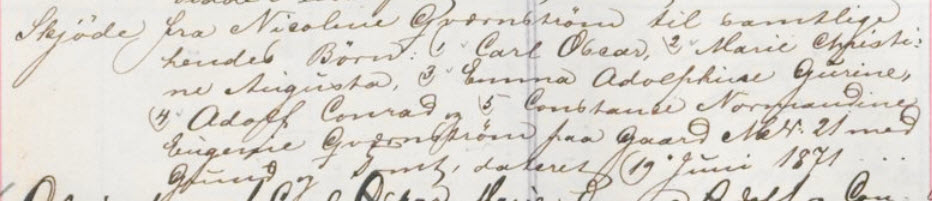 Skjöde fra Nicoline Gværnström til samtlige
hendes Börn: 1 Carl Oscar, 2 Marie Christi-
ne Augusta, 3 Emma Adolphine Gurine,
4 Adolf Conrad og 5 Constance Normandine
Eugenie Gværnström paa Gaard Mk No: 21 med
Grund og Tomt, dateret 19 Juni 1871